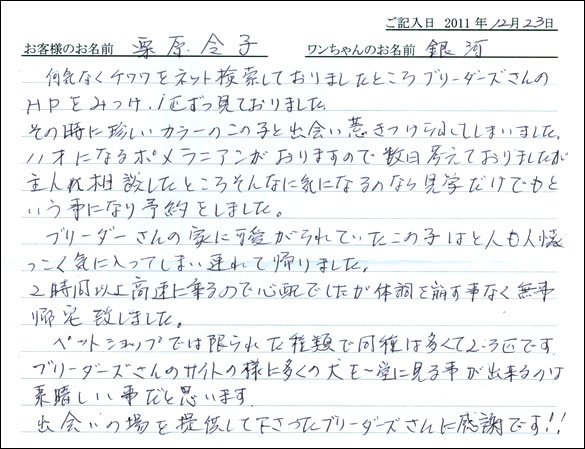 ご記入日 2011年12月23日
お客様のお名前 栗原令子 ワンちゃんのお名前 銀河
何気なくチワワをネット検索しておりましたところブリーダーズさんの
HPをみつけ、1匹ずつ見ておりました。
その時に珍しいカラーのこの子と出会い惹きつけられてしまいました。
11才になるポメラニアンがおりますので数日考えておりましたが
主人に相談したところそんなに気になるのなら見学だけでもと
いう事になり予約をしました。
ブリーダーさんの家に可愛がられていたこの子はと人も人懐
っこく気に入ってしまい連れて帰りました。
2時間以上高速に乗るので心配でしたが体調を崩す事なく無事
帰宅致しました。
ペットショップでは限られた種類で同種は多くて2~3匹です
ブリーダーズさんのサイトの様に多くの犬を一堂に見る事が出来るのは
素晴しい事だと思います
出会いの場を提供して下さったブリーダーズさんに感謝です!!